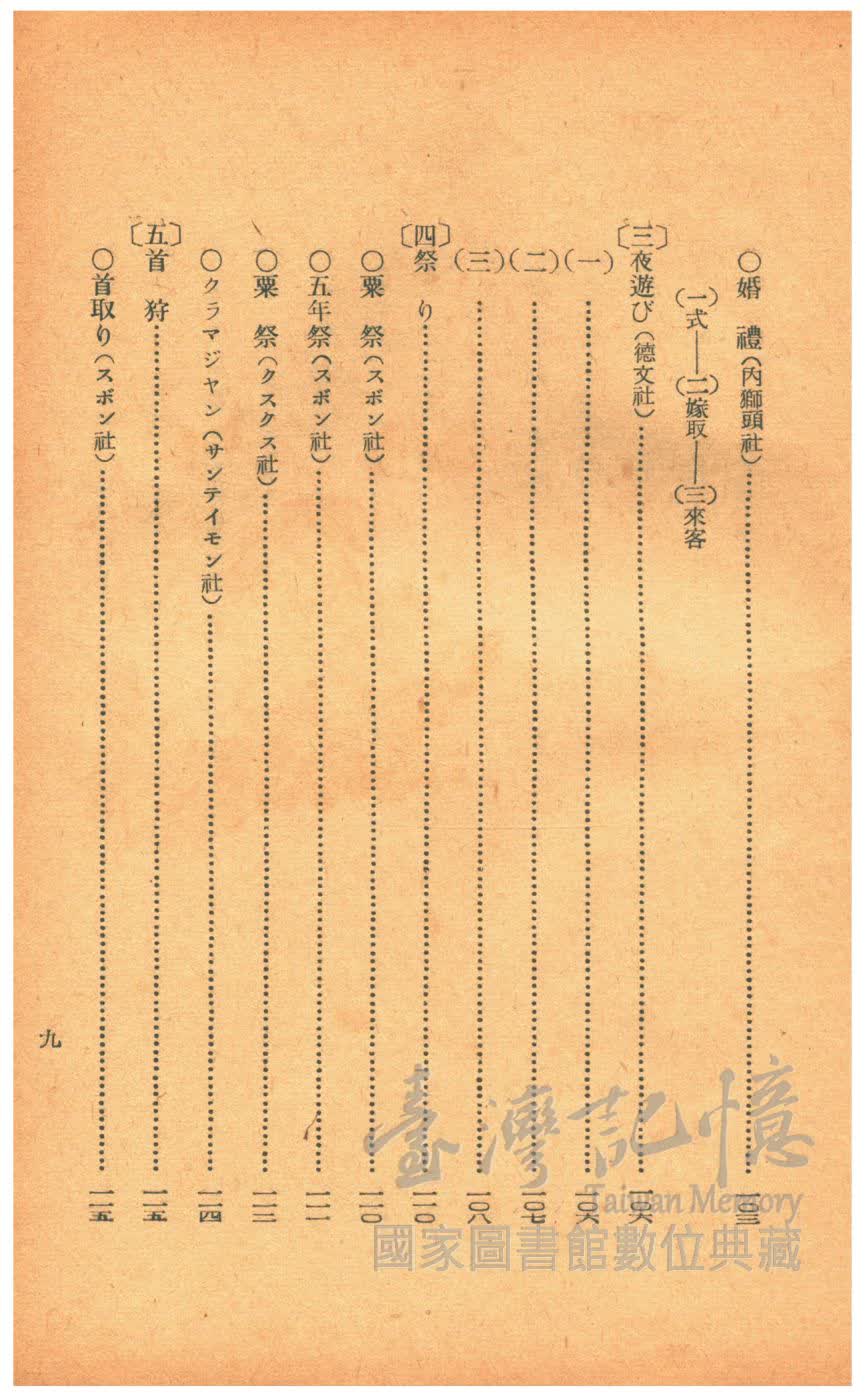 ○婚　禮（內獅頭社）……………一〇三
(一)式——(二)嫁取——(三)來客
〔三〕夜遊び（德文社）……………一〇六
(一)……………一〇六
(二)……………一〇七
(三)……………一〇八
〔四〕祭　り……………一一〇
○粟　祭（スボン社）……………一一〇
○五年祭（スボン社）……………一一一
○粟　祭（クスクス社）……………一一三
○クラマジヤン（サンテイモン社）……………一一四
〔五〕首　狩……………一一五
○首取り（スボン社）……………一一五
九
臺灣記憶
Taiwan Memory
國家圖書館數位典藏